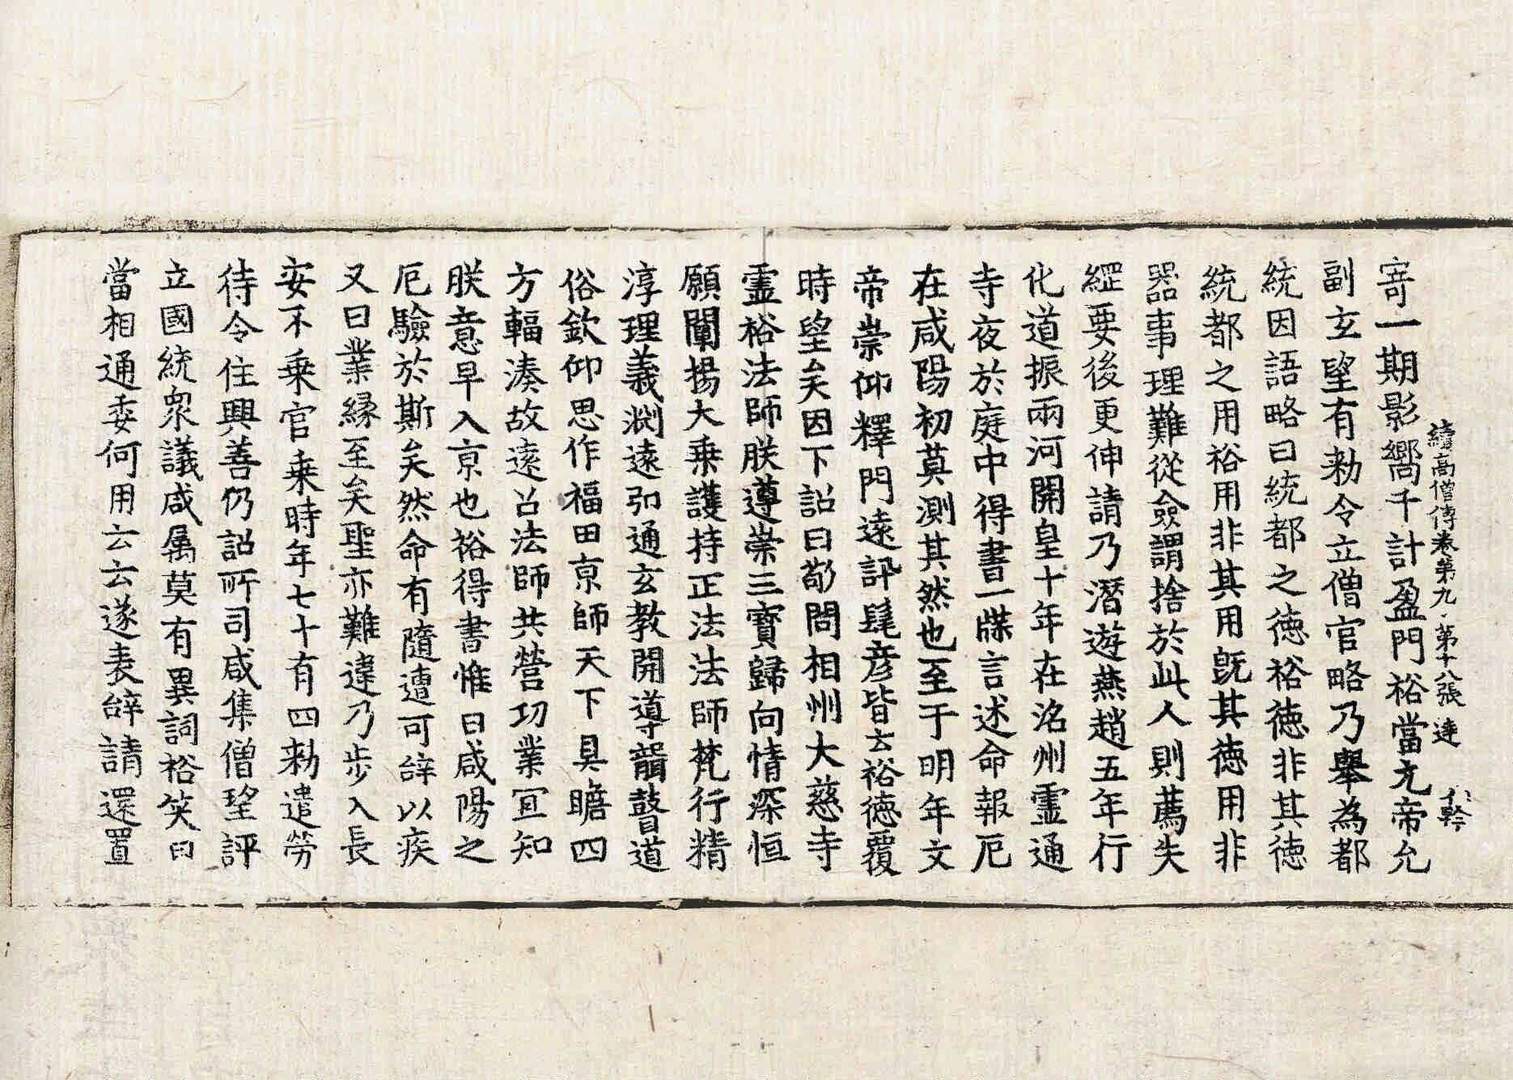 續高僧傳卷第九 第十八張 達
寄一期影嚮千計盈門裕當尢帝允
副玄望有勑令立僧官略乃舉為都
統因語略曰統都之德裕德非其德
統都之用裕用非其用旣其德用非
器事理難從僉謂捨於此人則薦失
經要後更伸請乃潛遊燕趙五年行
化道振兩河開皇十年在洺州靈通
寺夜於庭中得書一牒言述命報厄
在咸陽初莫測其然也至于明年文
帝崇仰釋門遠訪髦彦皆云裕德覆
時望矣因下詔曰敬問相州大慈寺
靈裕法師朕遵崇三寶歸向情深恒
願闡揚大乘護持正法法師梵行精
淳理義渕遠弘通玄教開導聾瞽道
俗欽仰思作福田亰師天下具瞻四
方輻湊故遠召法師共營功業冝知
朕意早入亰也裕得書惟曰咸陽之
厄驗於斯矣然命有隨遭可辝以疾
又曰業緣至矣聖亦難違乃步入長
安不乘官乘時年七十有四勑遣勞
待令住興善仍詔所司咸集僧望評
立國統衆議咸屬莫有異詞裕笑曰
當相通委何用云云遂表辝請還置